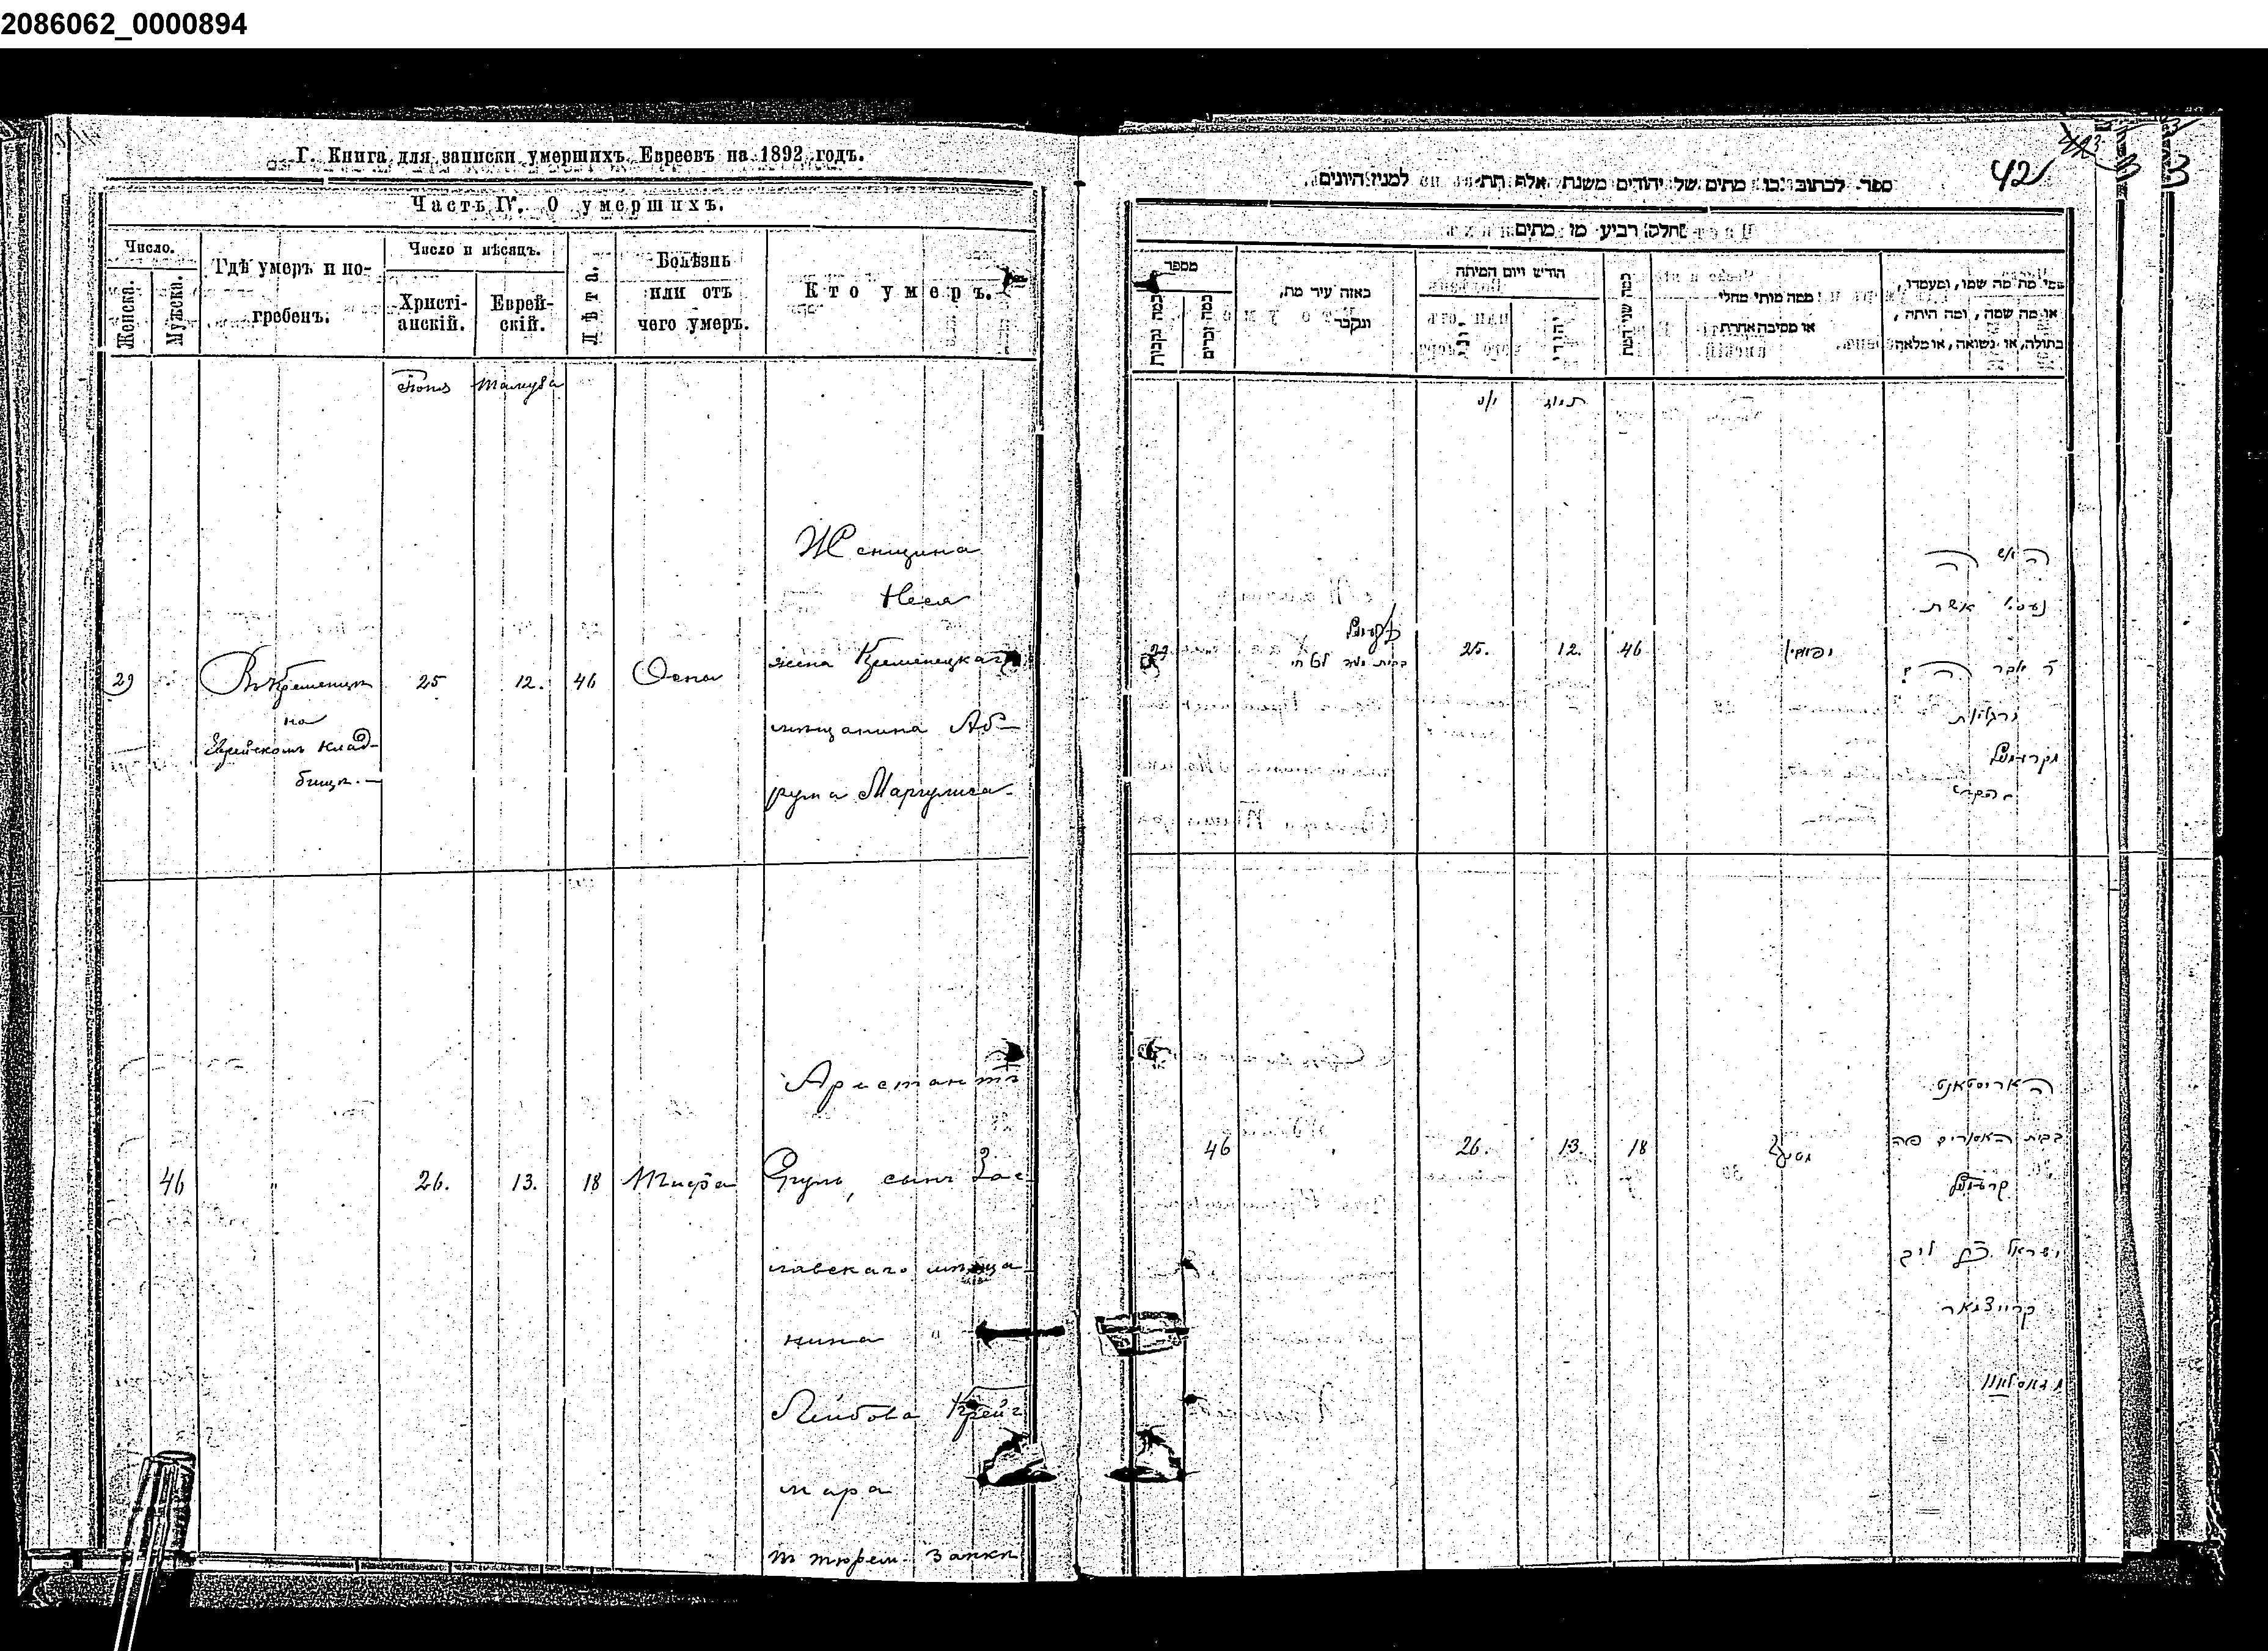 2086062_0000894
Г. Книга для записки умершихъ Евреевъ на 1892 годъ.
Часть IV. О умершихъ.
Число.
Женска.
Мужска.
Гдѣ умеръ и по-
гребенъ.
Число и мѣсяцъ.
Христі-
анскій.
Еврей-
скій.
Лѣта.
Болѣзнь
или отъ
чего умеръ.
Кто умеръ.
Тамуза
29
Въ Кременцѣ
на
Еврейскомъ клад-
бищѣ.—
25
12.
46
Оспа
Женщина
Неся
жена Кременецкаго
мѣщанина Аб-
рума Маргулиса.
46
"
26.
13.
18
Тифа
Арестантъ
Сруль, сынъ Зас-
лавскаго мѣща
нина
Лейбова Крейч
мара
въ тюрем. замкѣ
42
ספר לכתוב בו מתים של יהודים משנת אלף תת למנין היונים.
חלק רביעי מן מתים
מספר
כמה נקבות
כמה זכרים
באזה עיר מת,
ונקבר
חודש ויום המיתה
יוני
יהודי
כמה שני המת
ממה מותו מחלי
או מסיבה אחרת
ומי מת מה שמו, ומעמדו,
או מה שמה, ומה היתה,
בתולה, או נשואה, או מלאה.
יוני
תמוז
29
25.
12.
46
האשה
נעסי אשת
ר אבר
מרגליות
46
26.
13.
18
האריסטאנט
בבית האסורים פה
ישראל בן ליב
קרייצמאר